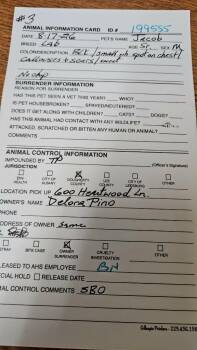 #3
ANIMAL INFORMATION CARD ID # 199555
DATE 8-17-26 PET'S NAME Jacob
BREED Lab AGE 5y SEX M
COLOR/DESCRIPTION BLK / small wht spot on chest /
No chip
SURRENDER INFORMATION
REASON FOR SURRENDER
HAS THIS PET SEEN A VET THIS YEAR? WHO?
IS PET HOUSEBROKEN? SPAYED/NEUTERED?
DOES IT GET ALONG WITH CHILDREN? CATS? DOGS?
HAS THIS ANIMAL HAD CONTACT WITH ANY WILDLIFE?
ATTACKED, SCRATCHED OR BITTEN ANY HUMAN OR ANIMAL?
COMMENTS
ANIMAL CONTROL INFORMATION
IMPOUNDED BY TP
(Officer's Signature)
JURISDICTION
CITY OF ALBANY
DOUGHERTY COUNTY
LEE COUNTY
CITY OF LEESBURG
OTHER
LOCATION PICK UP 600 Heartwood Ln.
OWNER'S NAME Delora Pino
PHONE
ADDRESS OF OWNER same
STRAY
BITE CASE
OWNER SURRENDER
CRUELTY INVESTIGATION
OTHER
RELEASED TO AHS EMPLOYEE BN
SPECIAL HOLD RELEASE DATE
ANIMAL CONTROL COMMENTS SBO